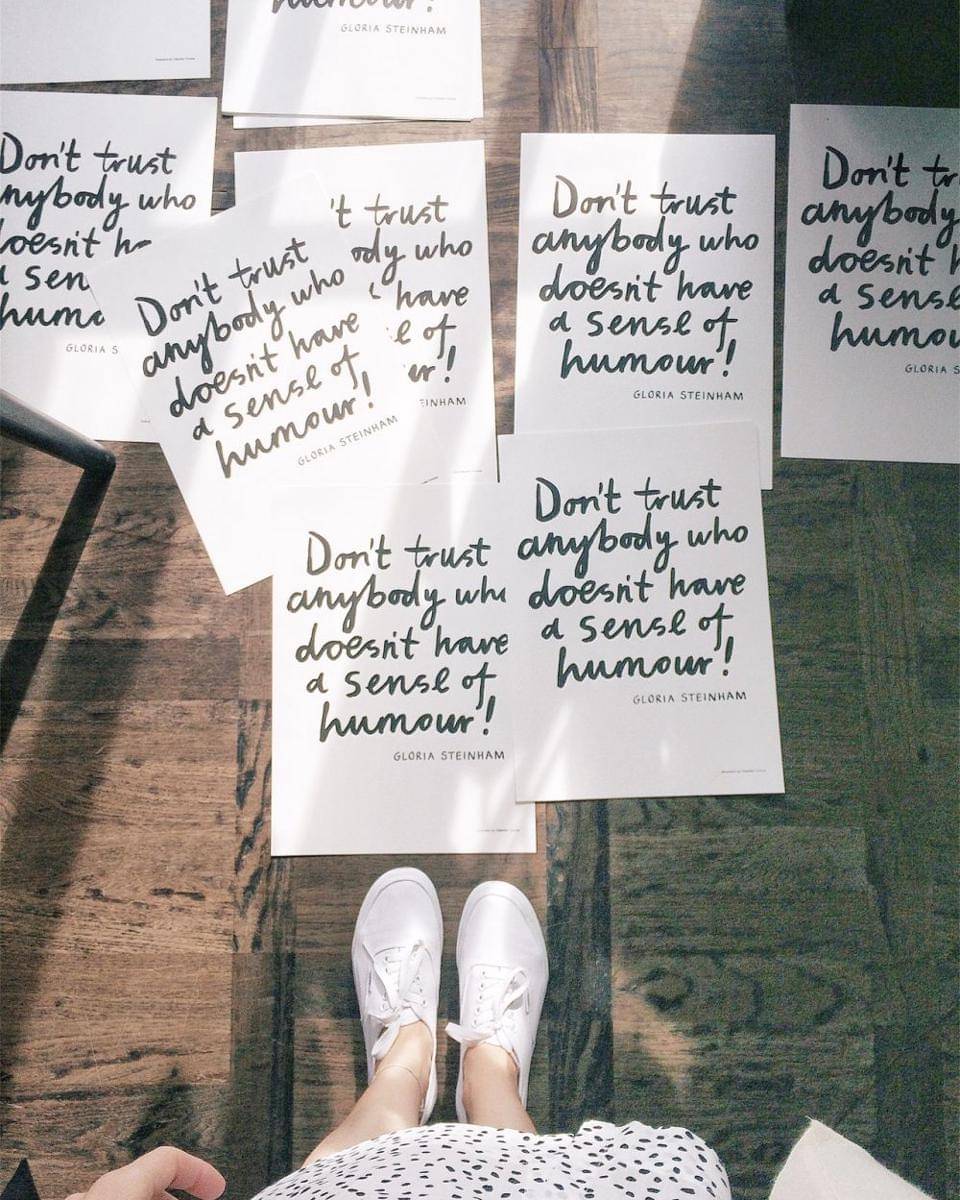 humour!
GLORIA STEINHAM
Don't trust
nybody who
doesn't ha
a sen
humo
GLORIA S
't trust
ody who
have
e of
ur!
EINHAM
Don't trust
anybody who
doesn't have
a sense of
humour!
GLORIA STEINHAM
Don't trust
anybody who
doesn't have
a sense of
humour!
GLORIA STEINHAM
Don't tr
anybody
doesn't h
a sense
humou
GLORIA S
Don't trust
anybody who
doesn't have
a sense of
humour!
GLORIA STEINHAM
Don't trust
anybody who
doesn't have
a sense of
humour!
GLORIA STEINHAM